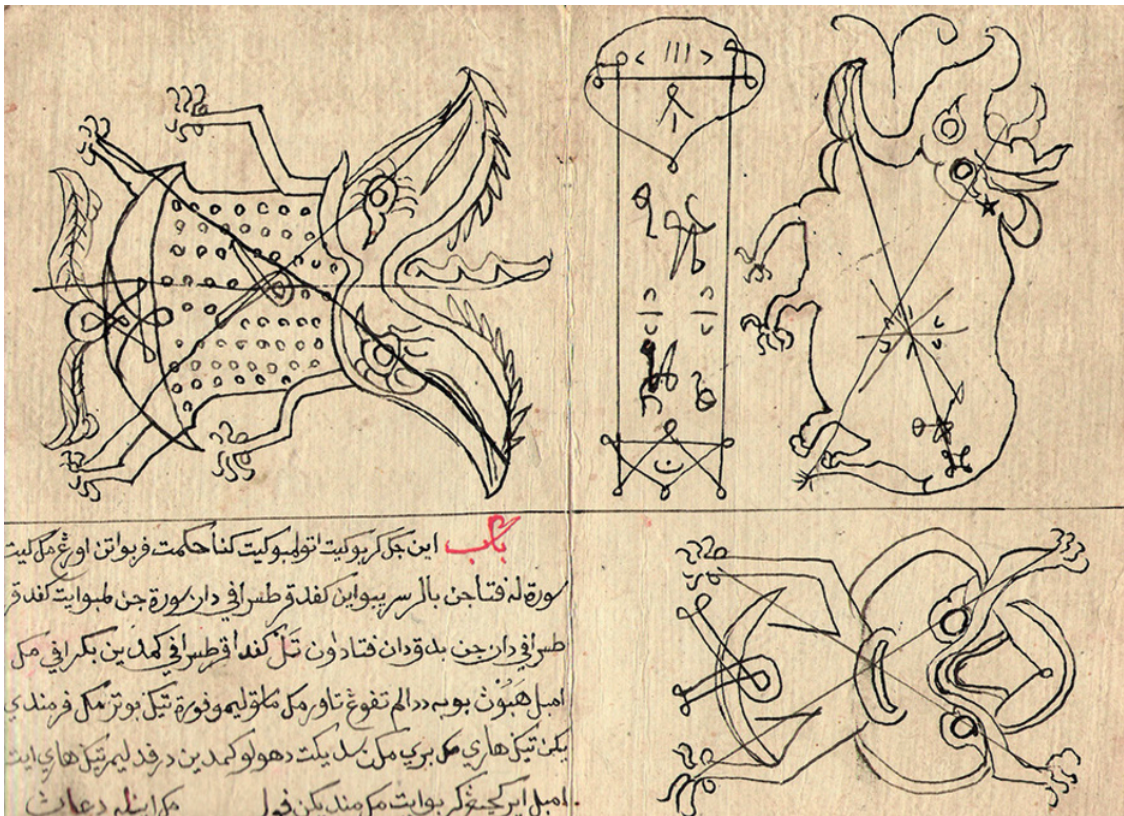 باب اين جك كربوكيت اتو لمبوكيت كنا حكمت فربواتن اورڠ مك كيت
سورة له فتا جن بالر سريبو اين كفد قرطس افي دان سورة جن لمبو ايت كفد قر
طس افي دان جن بدق دان فتا داون تال كفدا قرطس افي كمدين بكر افي مك
امبل هبوڽ بوبه ددالم تفوڠ تاور مك ليمو فورة تيك بوتر مك فرمندي
يكن تيك هاري مك بري مكن سديكت دهولو كمدين درفد تيك هاري ايت
امبل اير كربو ايت مك مندي كن فول مك اينله دعاڽ